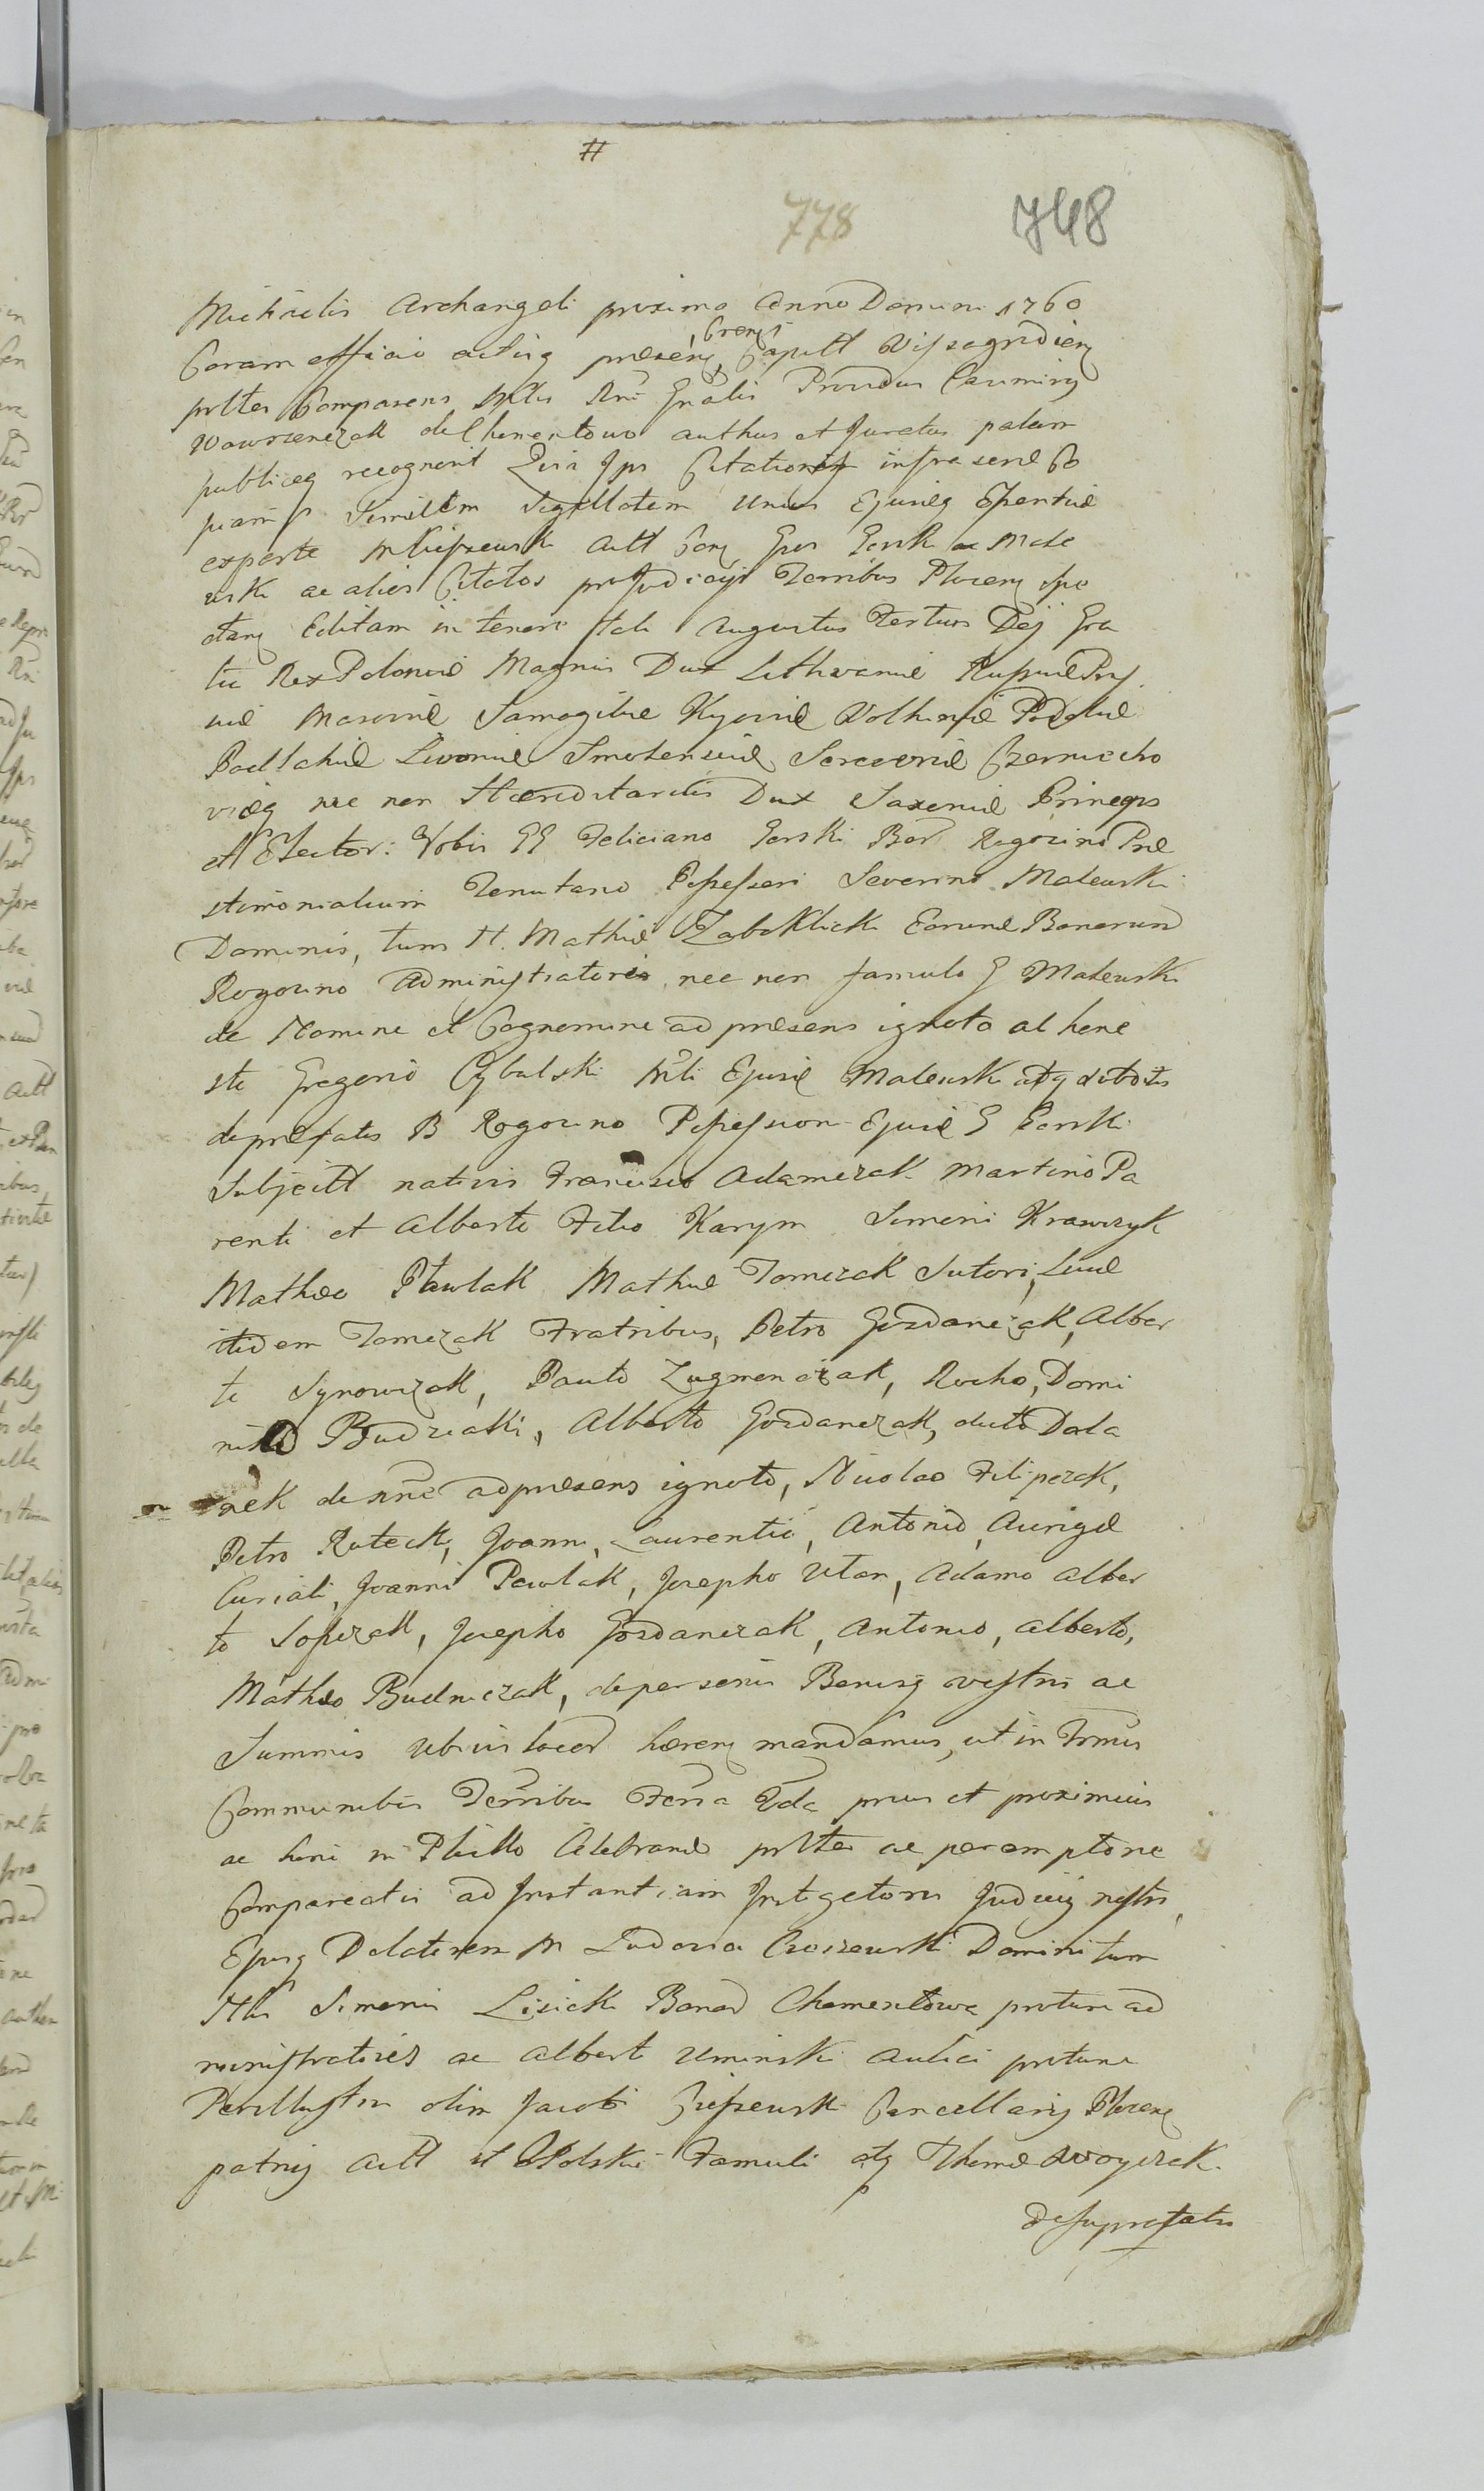 #
778 748
Michaelis Archangeli proxima Anno Domini 1760
Coram officio actisq præsenq Crensi Capitt Vissogrodien
psltes Comparens Mtlis Rni Gnalis Providus Casimirq
Wawrzenczak de Chmentowo authus et Juratus palam
publiceq recognovit Quia Ips Citationis infrascrip Co
piam Similem Sigillatam unius Ejusdeq
exparte M Ciszewsk Actt Conq Gsos Gorsk ac Male
wski ac alios Citatos pro Judicijs Terribus Plocenq spe
ctanq Editam in tenore tali Augustus Tertius Dej Gra
tia Rex Poloniæ Magnus Dux Lithvaniæ Russiæ Prus
siæ Masoviæ Samogitiæ Kyoviæ Volhiniæ Podoliæ
Podlachiæ Livoniæ Smolensciæ Severiæ Czerniecho
viæq nec non Hæreditarius Dux Saxoniæ Princeps
et Elector: Vobis GG Feliciano Gorski Bor Rogozino Præ
stimonialium Tenutario Possessori Severino Malewski
Dominis, tum H. Mathiæ Zaboklicki Eorund Bonorum
Rogozino Administratoris nec non famulo G Malewski
de Nomine et Cognomine ad præsens ignoto al hone
sto Gregorio Cybulski Mtli Ejusd Malewsk atq subdtis
de præfatis B Rogozino Possession Ejusd G Gorski
Subjectt nativis Francisco Adamczak Martino Pa
renti et Alberto Filio Karym Simeni Krawczyk
Mathæo Pawlak Mathiæ Tomczak Sutori, Lucæ
itidem Tomczak Fratribus, Petro Gozdanczak, Alber
to Synowczak, Paulo Zugmenczak, Rocho, Domi
nico Budziaki, Alberto Gozdanczak, dicto Dola
nek de nne ad præsens ignoto, Nicolao Filipczak,
Petro Rateck, Joanni, Laurentio, Antonio, Aurigæ
Curiali, Joanni Pawlak, Josepho Utan, Adamo Alber
to Sopczak, Josepho Gozdanczak, Antonio, Alberto,
Mathæo Budniczak, de personis Bonisq vestris ac
Summis ubivis locor hæren mandamus, ut in Trmis
Communibus Terribus Feria 2da prius et proximius
ac hinc in Plocko Celebrand psltes ac peremptorie
Compareatis ad Instantiam Instigatoris Judicij nostri,
Ejusq Delatorem M Ludovici Ciszewski Domini tum
Hti Simonis Lisicki Bonor Chmentowa protunc ad
ministratoris ac Albert Uminski Aulici protunc
Perillustris olim Jacobi Ciszewsk Cancellarij Plocenq
patrij Actt et Opolski Famuli atq Thomæ Woyczak
de supra fatis